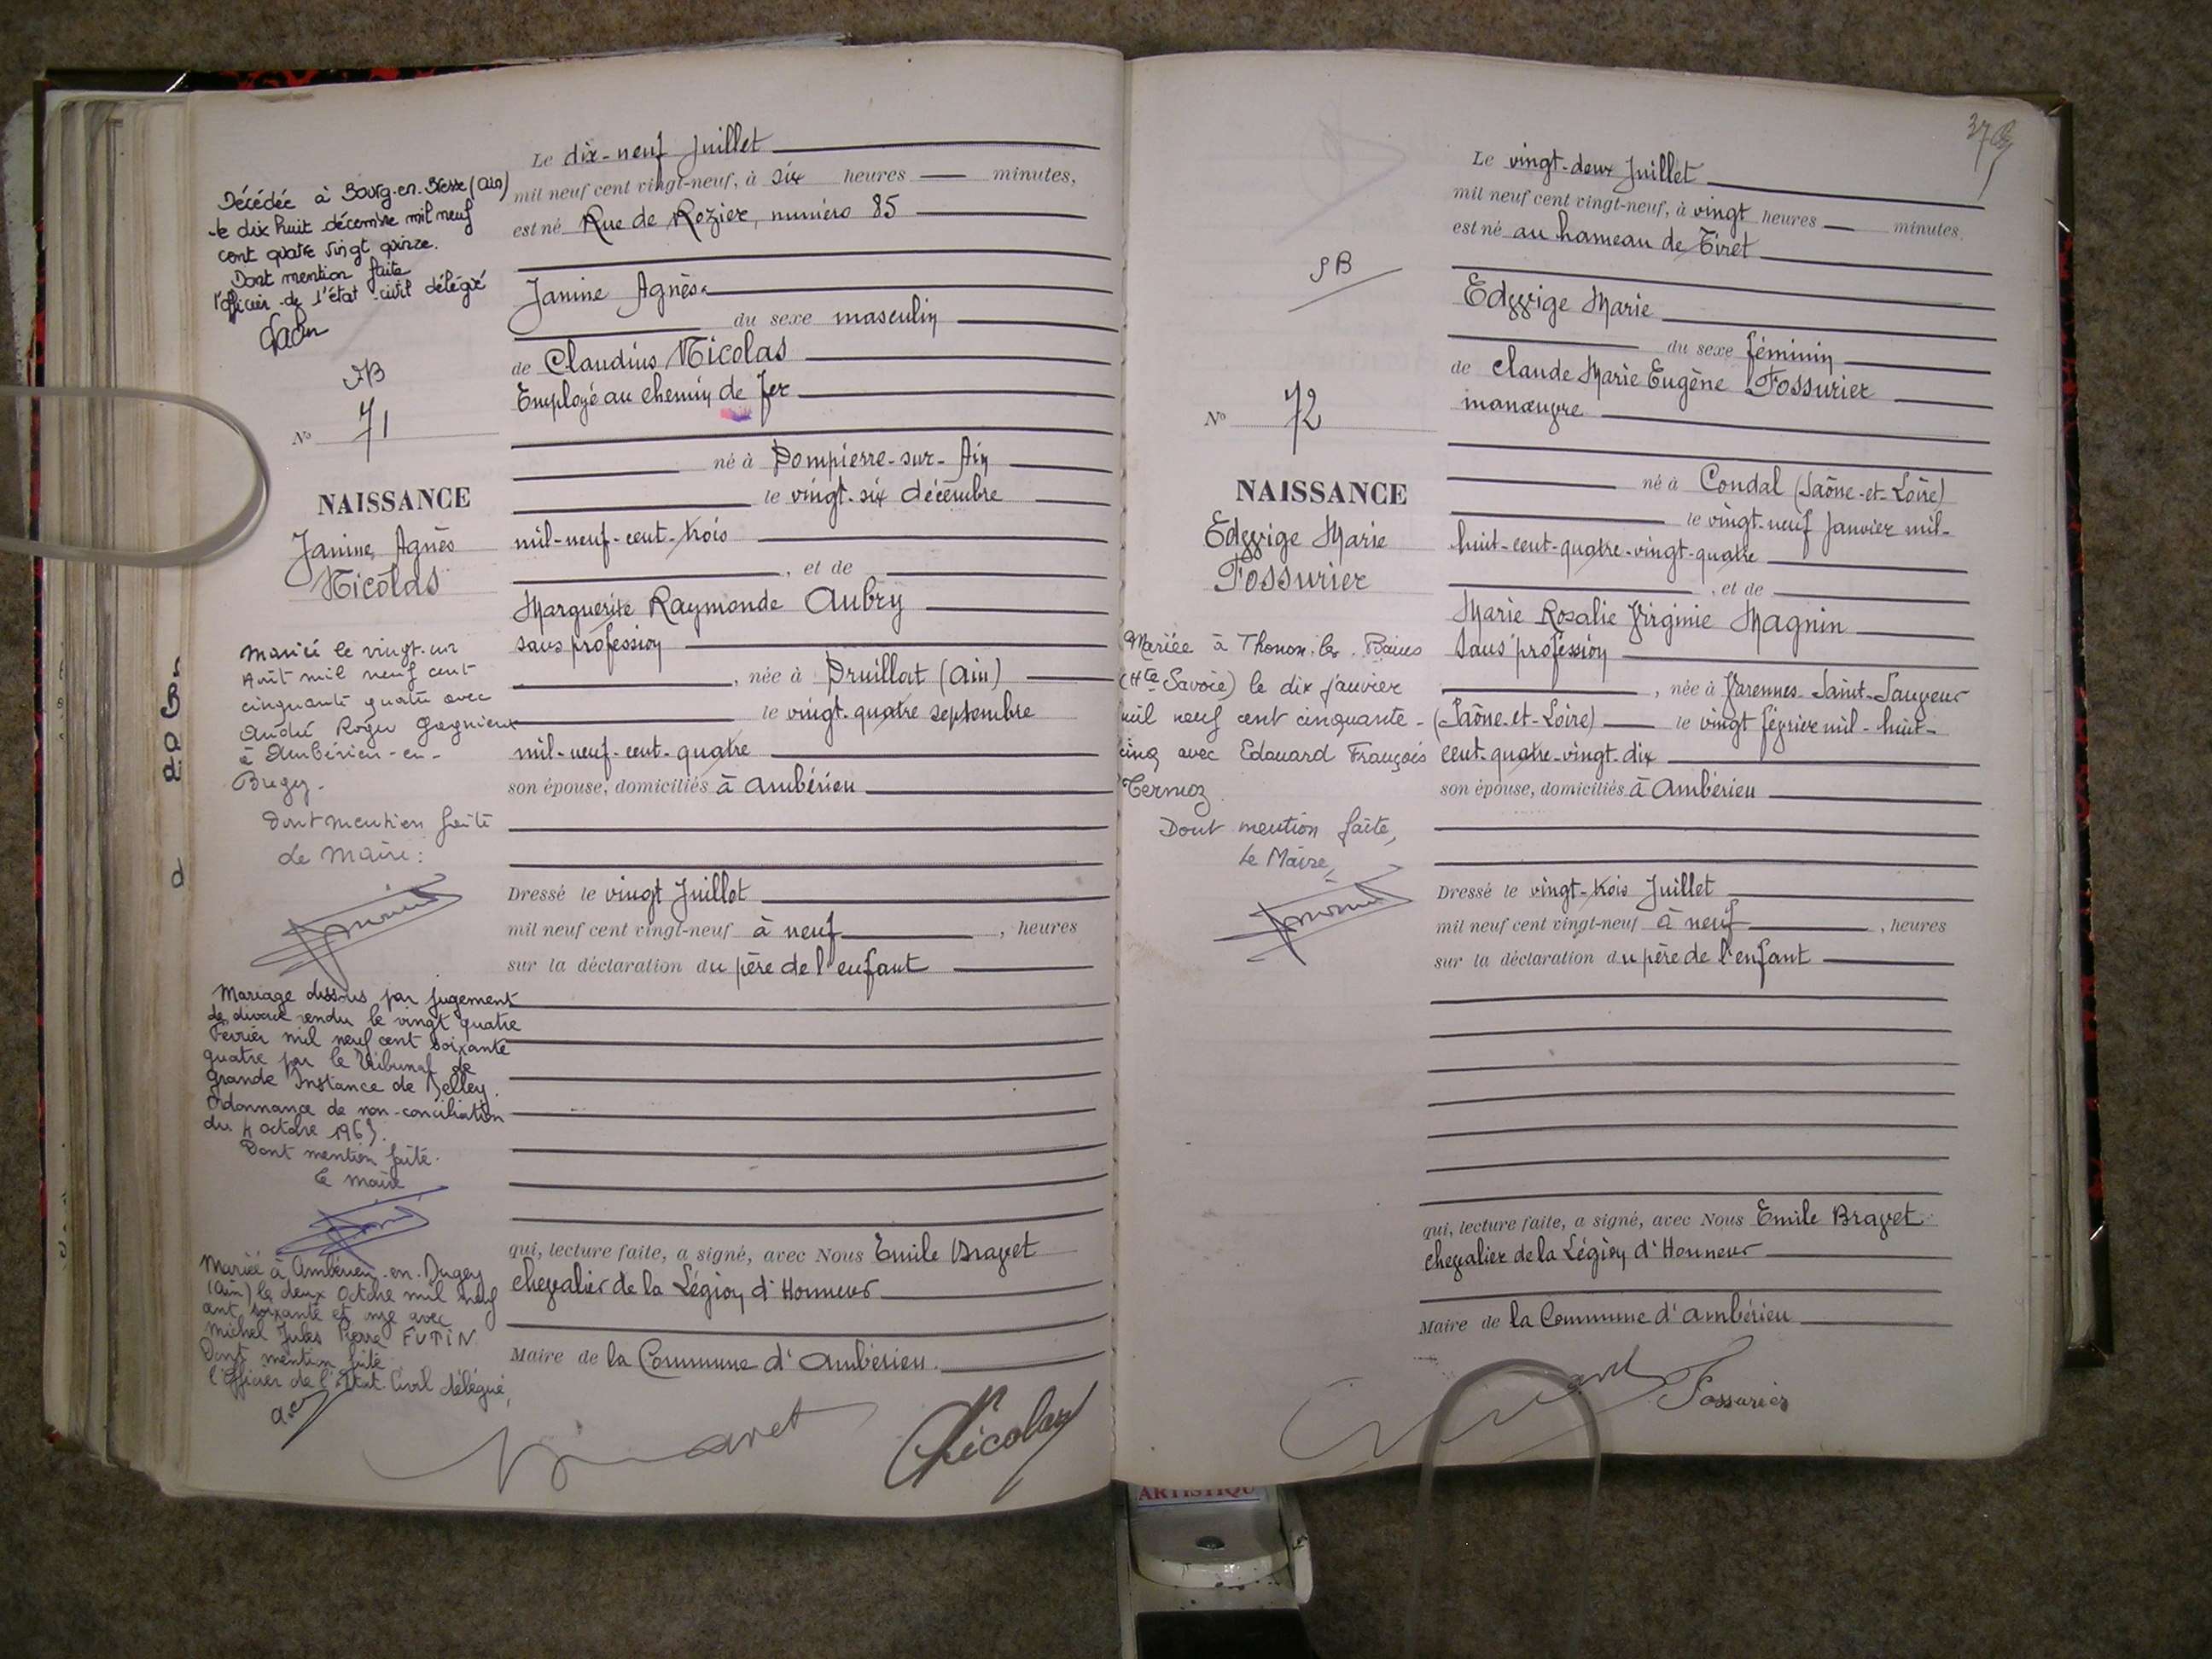 Décédée à Bourg-en-Bresse (Ain)
le dix huit décembre mil neuf
cent quatre vingt quinze.
Dont mention faite
l'officier de l'état-civil délégué
N° 71
NAISSANCE
Janine, Agnès
Nicolas
Mariée le vingt-un
Août mil neuf cent
cinquante quatre avec
André Roger
à Ambérieu-en-
Bugey.
Dont mention faite
Le Maire:
Mariage dissous par jugement
de divorce rendu le vingt quatre
Février mil neuf cent soixante
quatre par le Tribunal de
grande Instance de Belley.
Ordonnance de non-conciliation
du 4 octobre 1963.
Dont mention faite.
Le maire
Mariée à Ambérieu-en-Bugey
(Ain) le deux Octobre mil neuf
cent soixante et onze avec
Michel Jules Pierre FUTIN
Dont mention faite
l'Officier de l'Etat-Civil délégué,
Le dix-neuf Juillet
mil neuf cent vingt-neuf, à six heures — minutes,
est né Rue de Rozier, numéro 85
Janine Agnès
du sexe masculin
de Claudius Nicolas
Employé au chemin de fer
né à Dompierre-sur-Ain
le vingt-six décembre
mil-neuf-cent-trois
, et de
Marguerite Raymonde Aubry
sans profession
, née à Druillat (Ain)
le vingt-quatre septembre
mil-neuf-cent-quatre
son épouse, domiciliés à Ambérieu
Dressé le vingt Juillet
mil neuf cent vingt-neuf à neuf , heures
sur la déclaration du père de l'enfant
qui, lecture faite, a signé, avec Nous Emile Bravet
chevalier de la Légion d'Honneur
Maire de la Commune d'Ambérieu.
Bravet
Nicolas
37
N° 72
NAISSANCE
Edwige Marie
Fossurier
Mariée à Thonon-les-Bains
(Hte Savoie) le dix janvier
mil neuf cent cinquante-
cinq avec Edouard François
Termoz
Dont mention faite,
Le Maire,
Le vingt-deux Juillet
mil neuf cent vingt-neuf, à vingt heures — minutes.
est né au hameau de Tiret
Edwige Marie
du sexe féminin
de Claude Marie Eugène Fossurier
manœuvre
né à Condal (Saône-et-Loire)
le vingt-neuf Janvier mil-
huit-cent-quatre-vingt-quatre
, et de
Marie Rosalie Virginie Magnin
Sans profession
, née à Varennes-Saint-Sauveur
(Saône-et-Loire) le vingt février mil-huit-
cent-quatre-vingt-dix
son épouse, domiciliés à Ambérieu
Dressé le vingt-trois Juillet
mil neuf cent vingt-neuf à neuf , heures
sur la déclaration du père de l'enfant
qui, lecture faite, a signé, avec Nous Emile Bravet
chevalier de la Légion d'Honneur
Maire de la Commune d'Ambérieu
Fossurier
ARTISTIQU